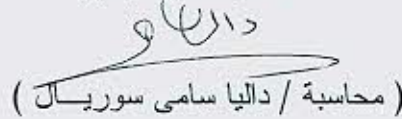 ( محاسبة / داليا سامى سوريــال )